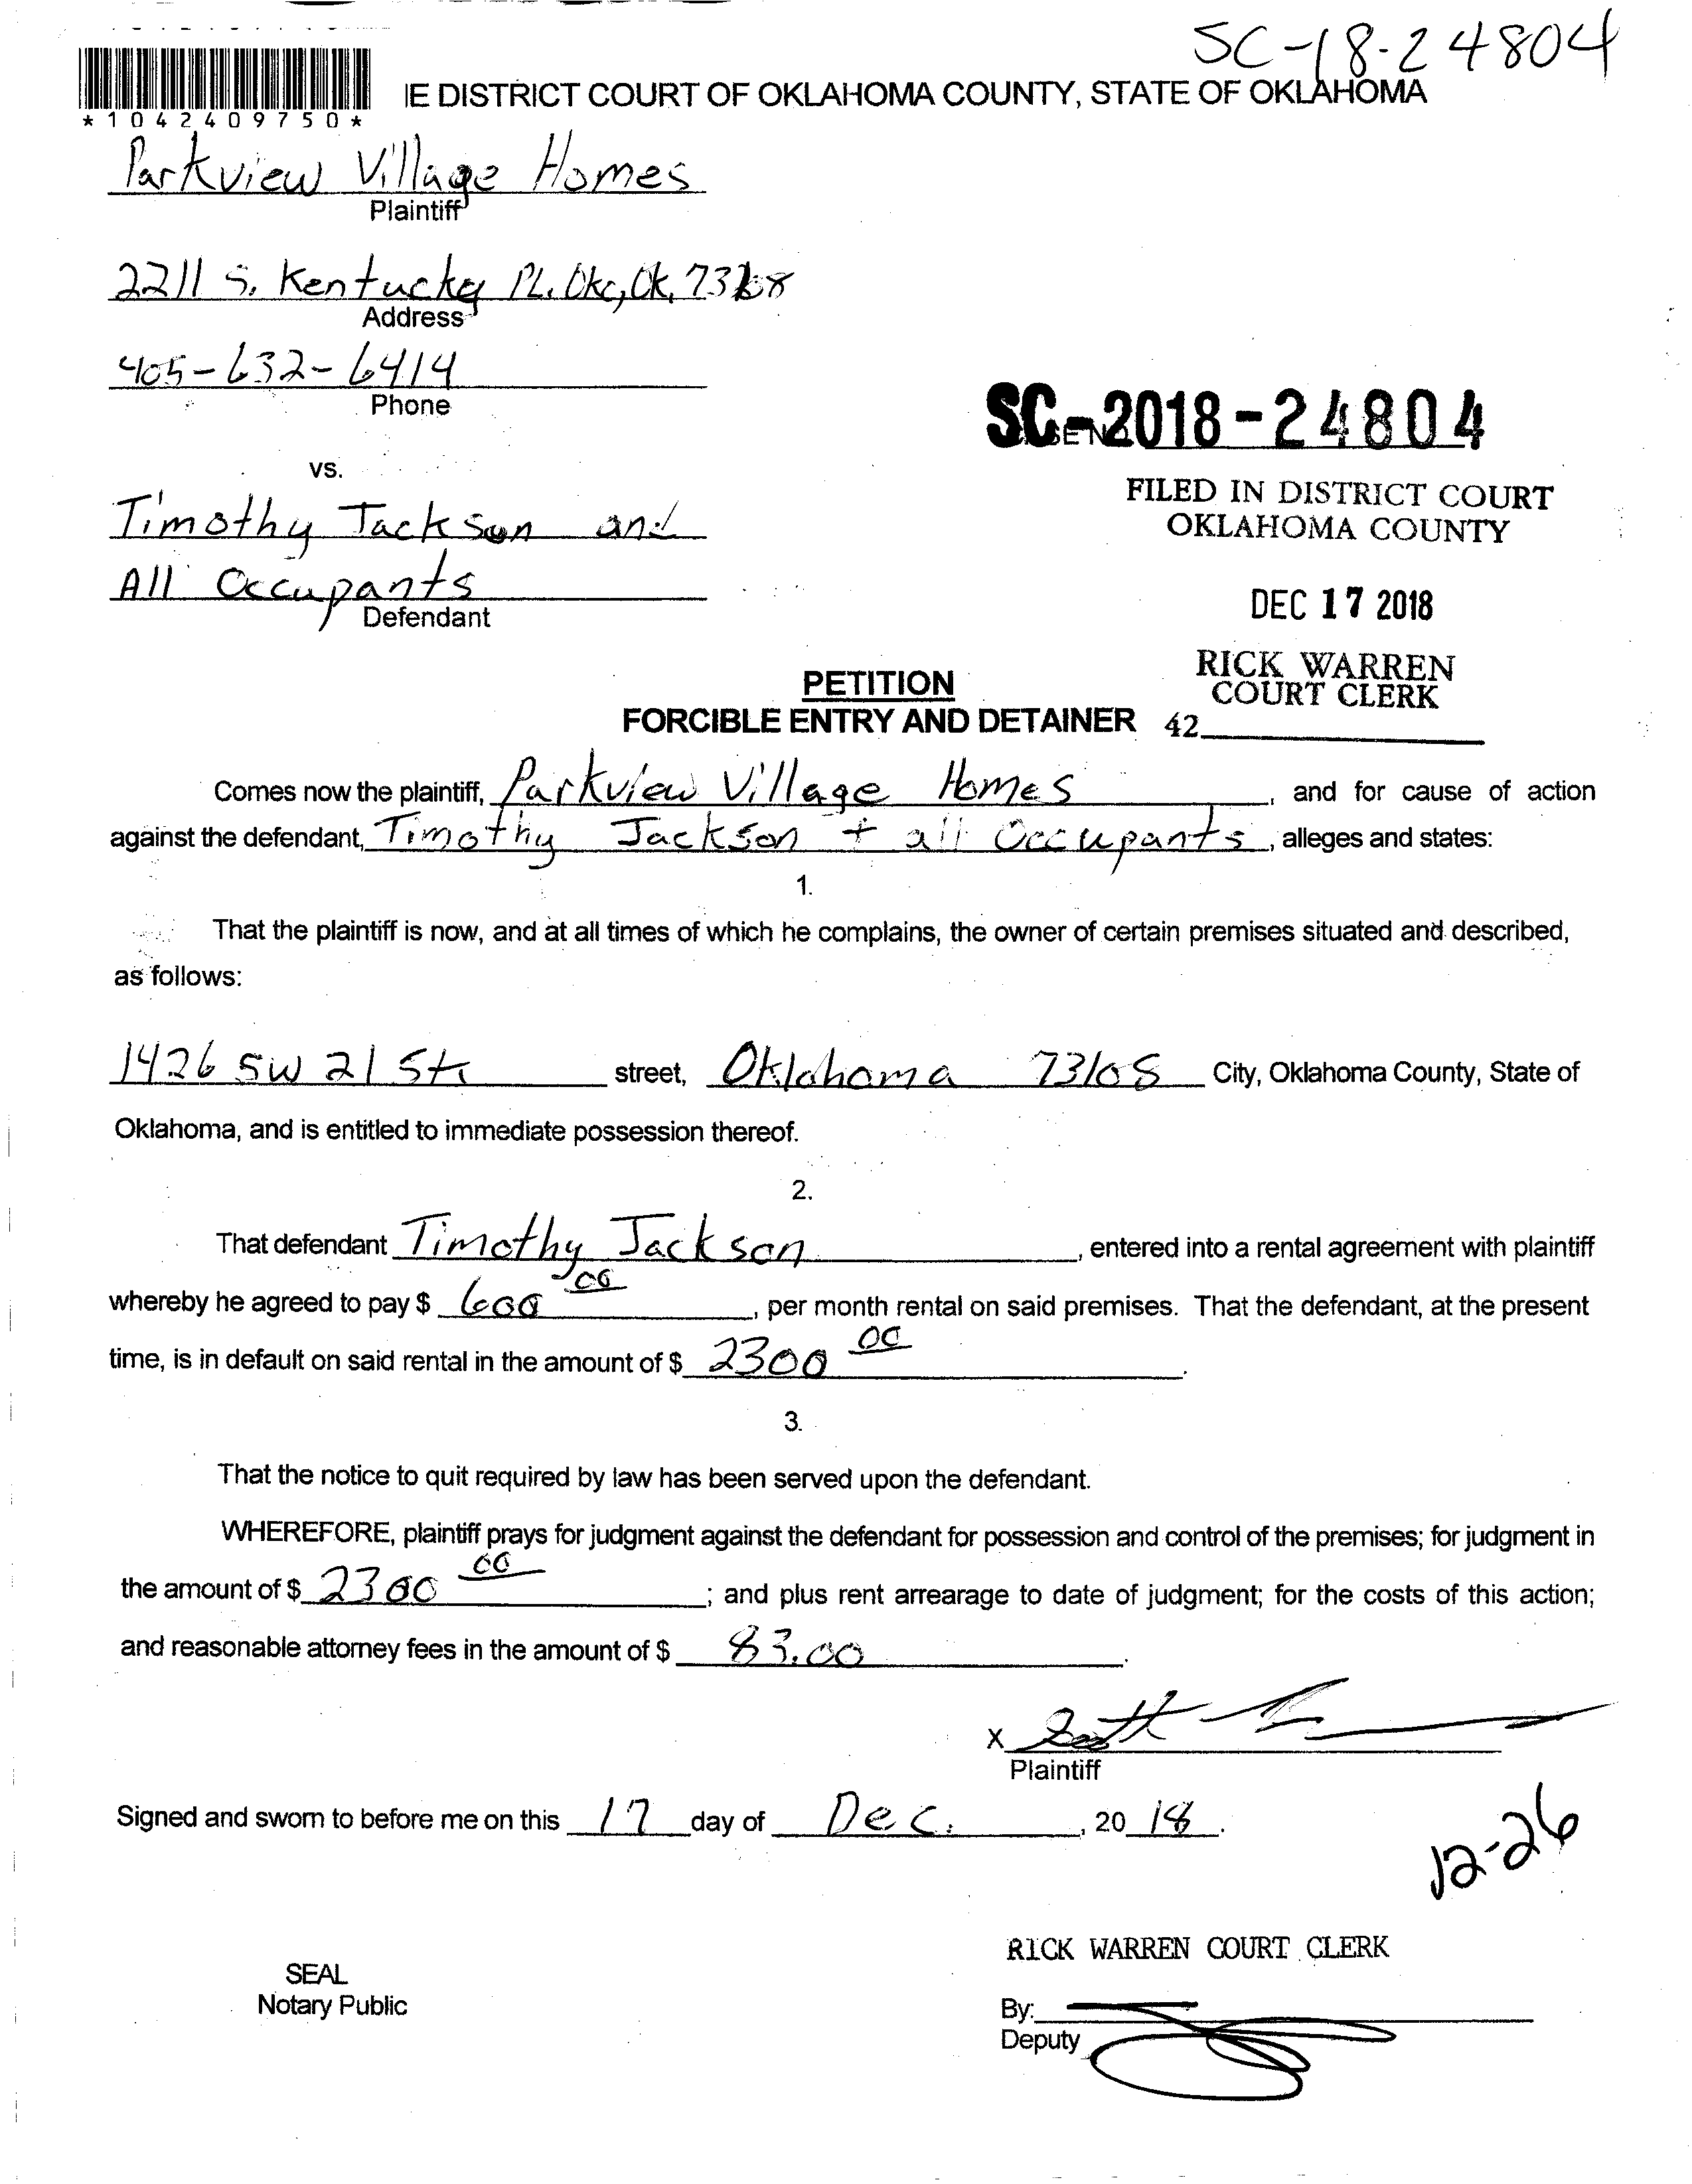 SC-18-24804
IE DISTRICT COURT OF OKLAHOMA COUNTY, STATE OF OKLAHOMA
*1042409750*
Parkview Village Homes
Plaintiff
2211 S. Kentucky PL. Okc, Ok, 73108
Address
405-632-6414
Phone
SC-2018-24804
vs.
FILED IN DISTRICT COURT
OKLAHOMA COUNTY
Timothy Jackson and
All Occupants
Defendant
DEC 17 2018
RICK WARREN
COURT CLERK
42
PETITION
FORCIBLE ENTRY AND DETAINER
Comes now the plaintiff, Parkview Village Homes, and for cause of action
against the defendant, Timothy Jackson + all Occupants, alleges and states:
1.
That the plaintiff is now, and at all times of which he complains, the owner of certain premises situated and described,
as follows:
1426 SW 21 St. street, Oklahoma 73108 City, Oklahoma County, State of
Oklahoma, and is entitled to immediate possession thereof.
2.
That defendant Timothy Jackson, entered into a rental agreement with plaintiff
whereby he agreed to pay $ 600 00, per month rental on said premises. That the defendant, at the present
time, is in default on said rental in the amount of $ 2300 00.
3.
That the notice to quit required by law has been served upon the defendant.
WHEREFORE, plaintiff prays for judgment against the defendant for possession and control of the premises; for judgment in
the amount of $ 2300 00; and plus rent arrearage to date of judgment; for the costs of this action;
and reasonable attorney fees in the amount of $ 83.00.
X
Plaintiff
Signed and sworn to before me on this 17 day of Dec., 20 18.
12-26
RICK WARREN COURT CLERK
SEAL
Notary Public
By:
Deputy